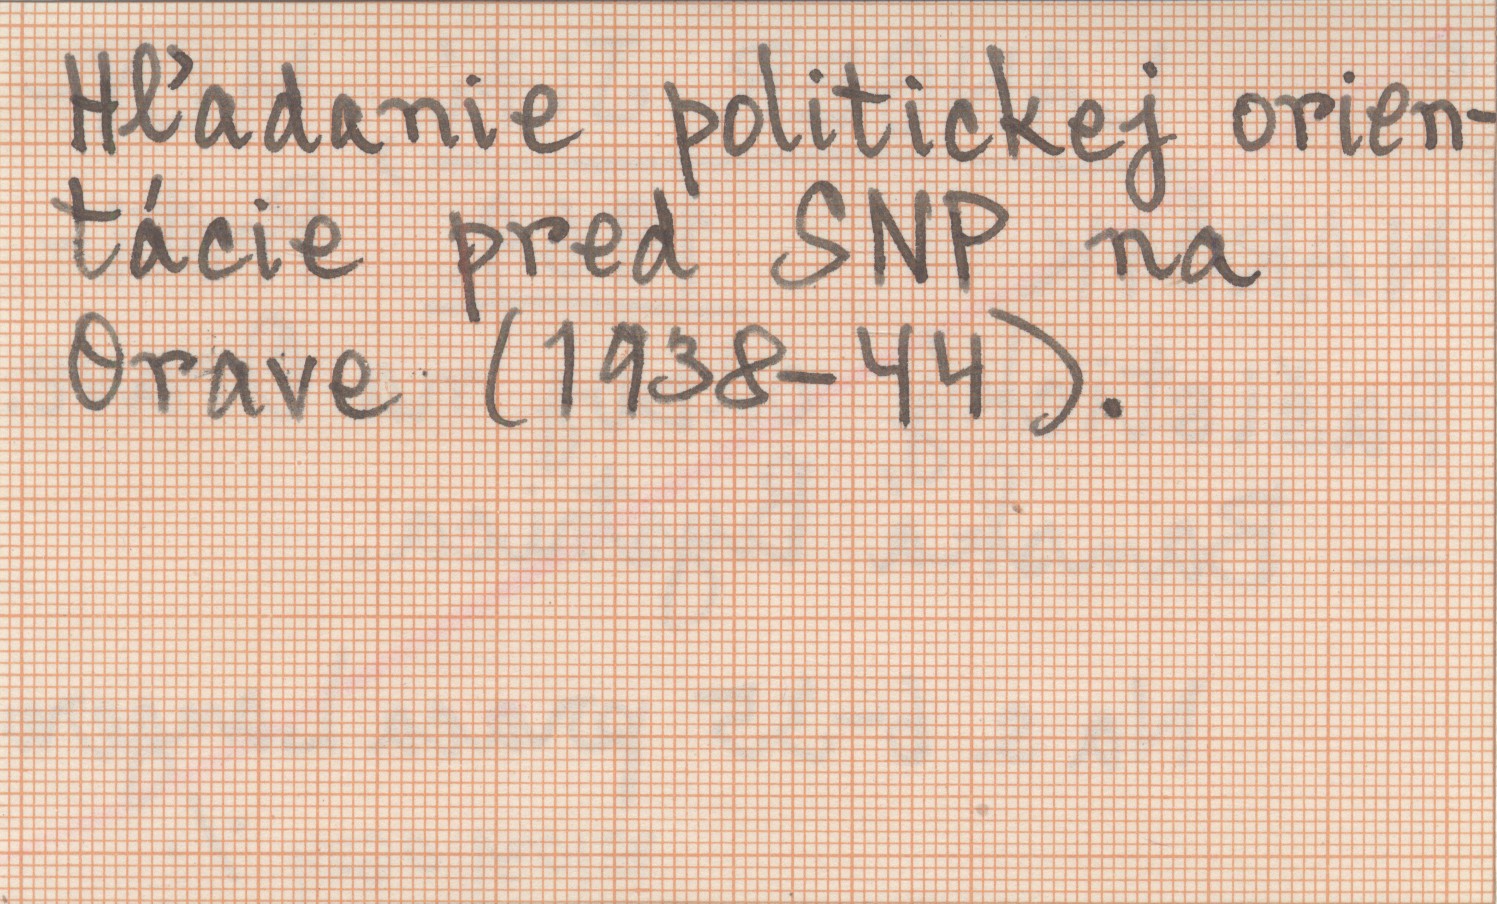 Hľadanie politickej orien-
tácie pred SNP na
Orave (1938-44).